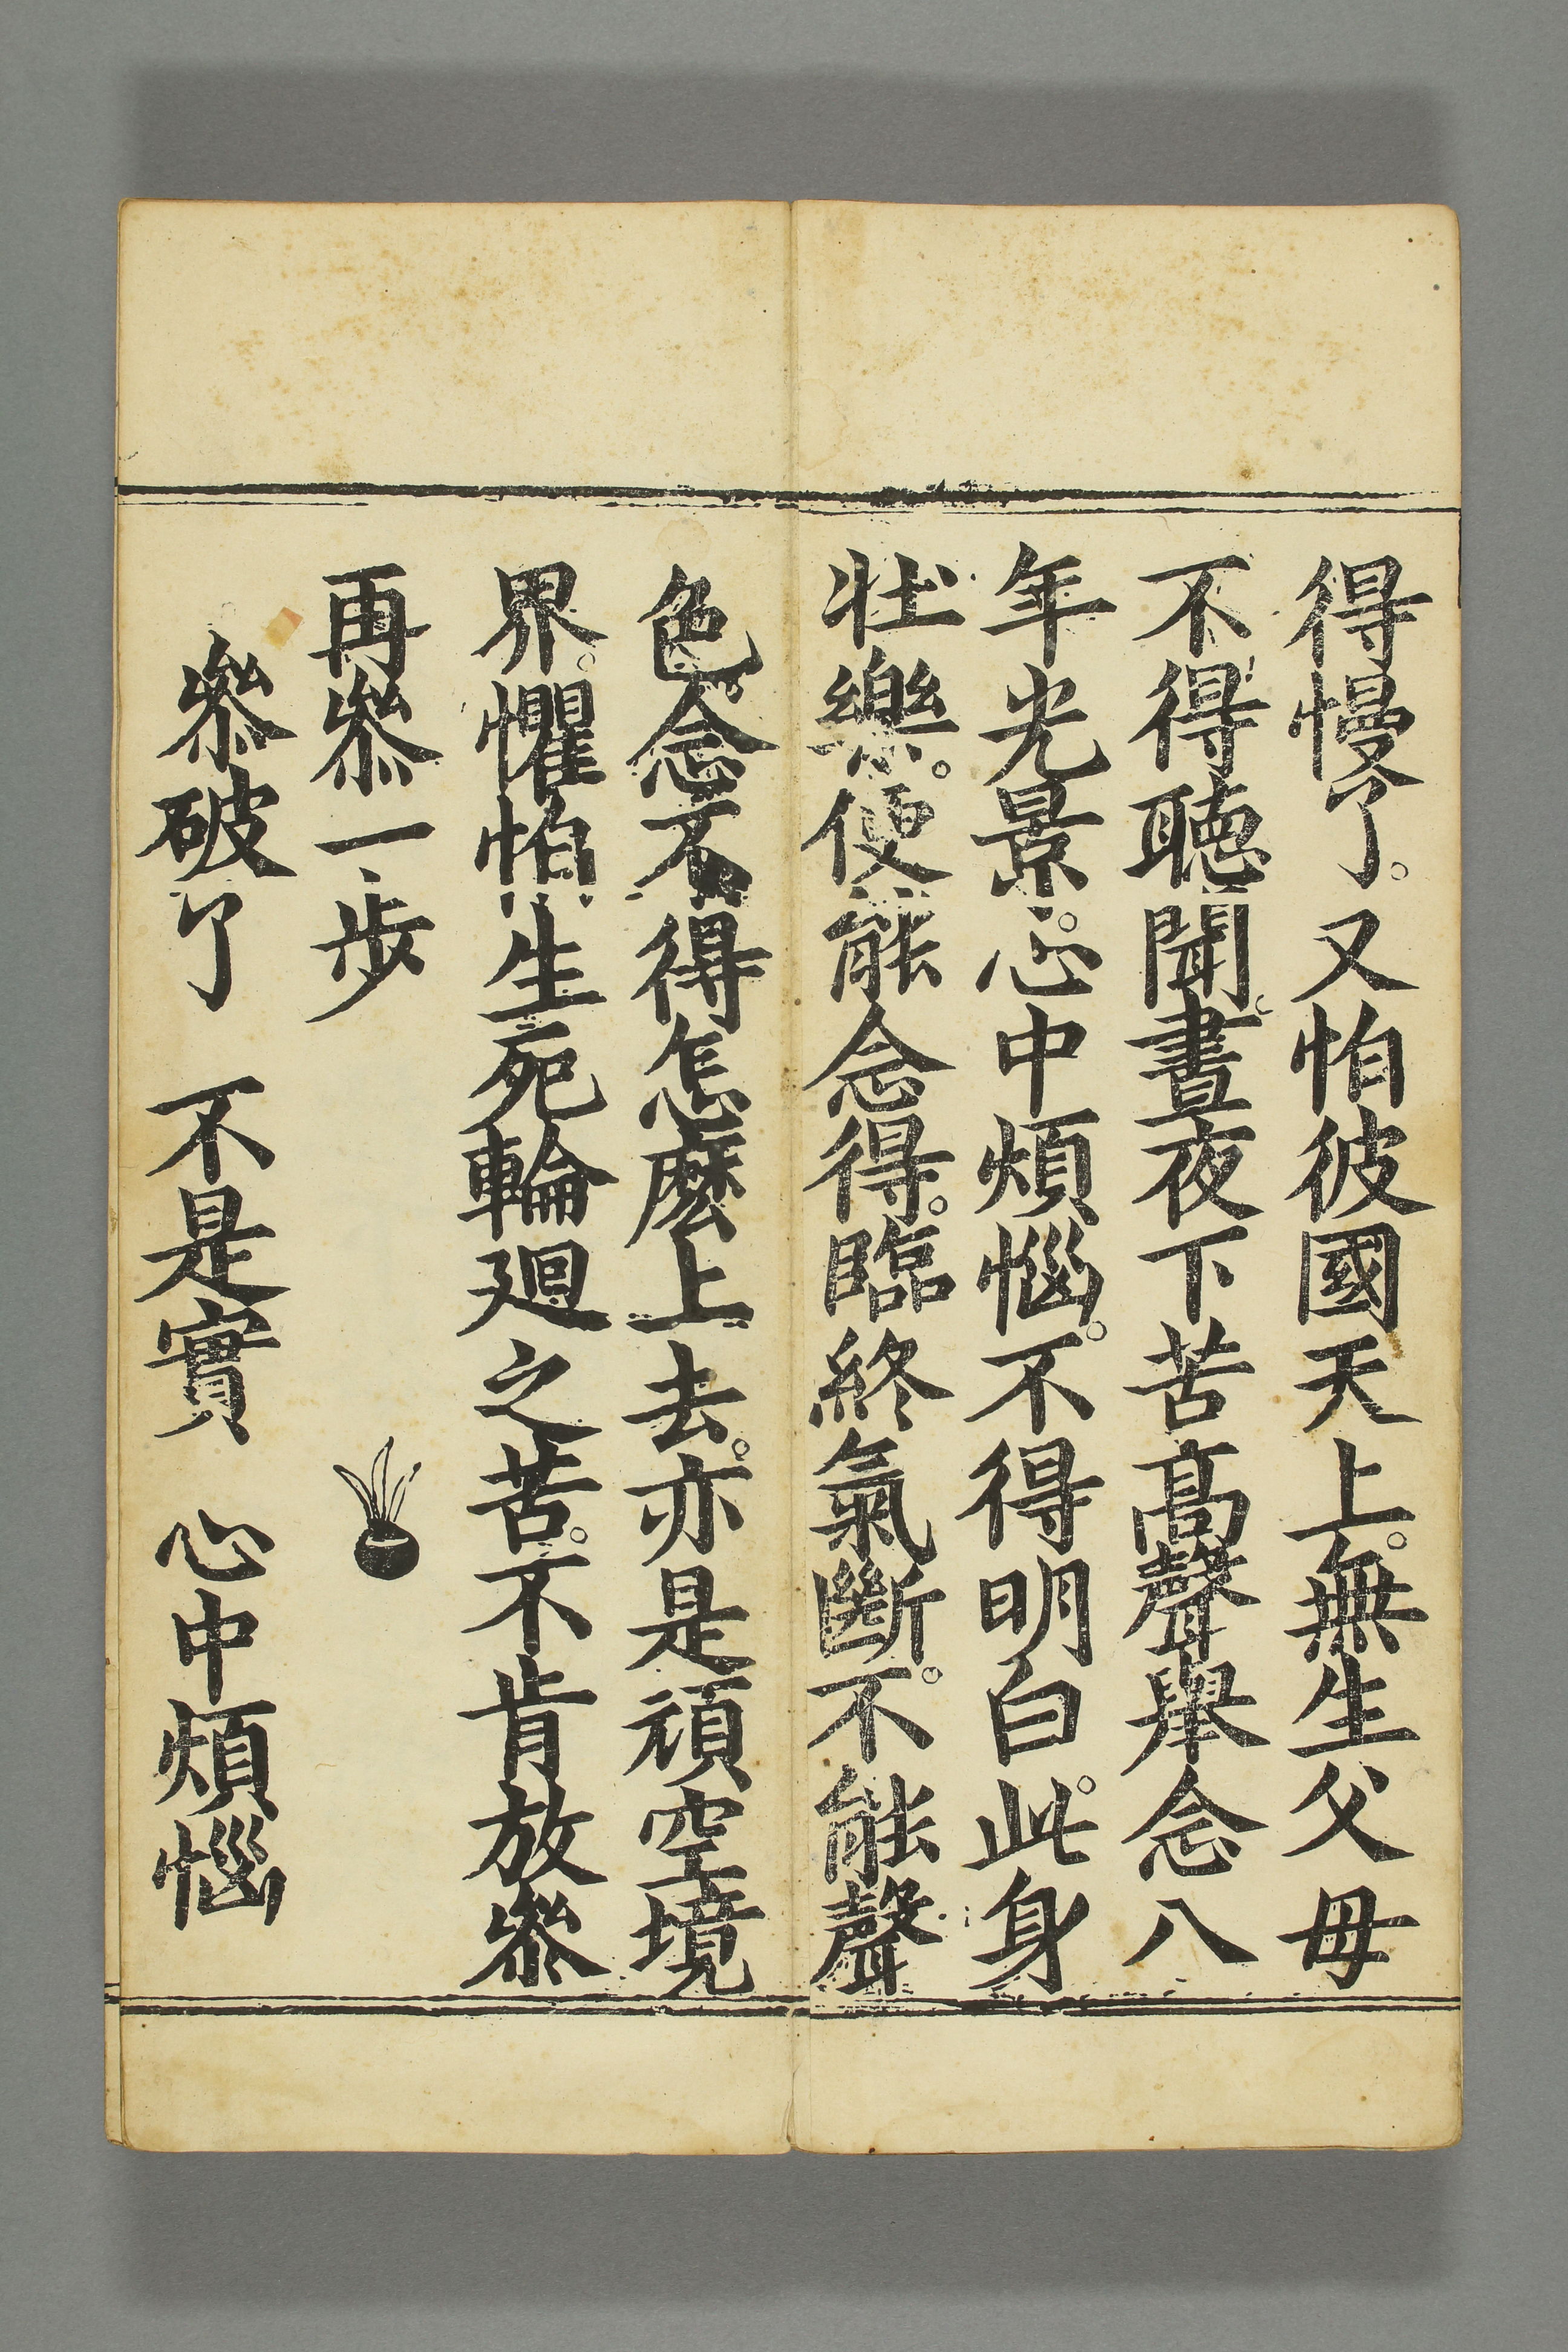 得慢了。又怕彼國天上。無生父母
不得聴聞。晝夜下苦髙聲舉念八
年光景。心中煩惱。不得明白。此身
壮樂。便能念得。臨終氣斷。不能聲
色。念不得怎麽上去。亦是頑空境
界。懼怕生死輪廻之苦。不肯放叅
再叅一步
叅破了　不是實　心中煩惱